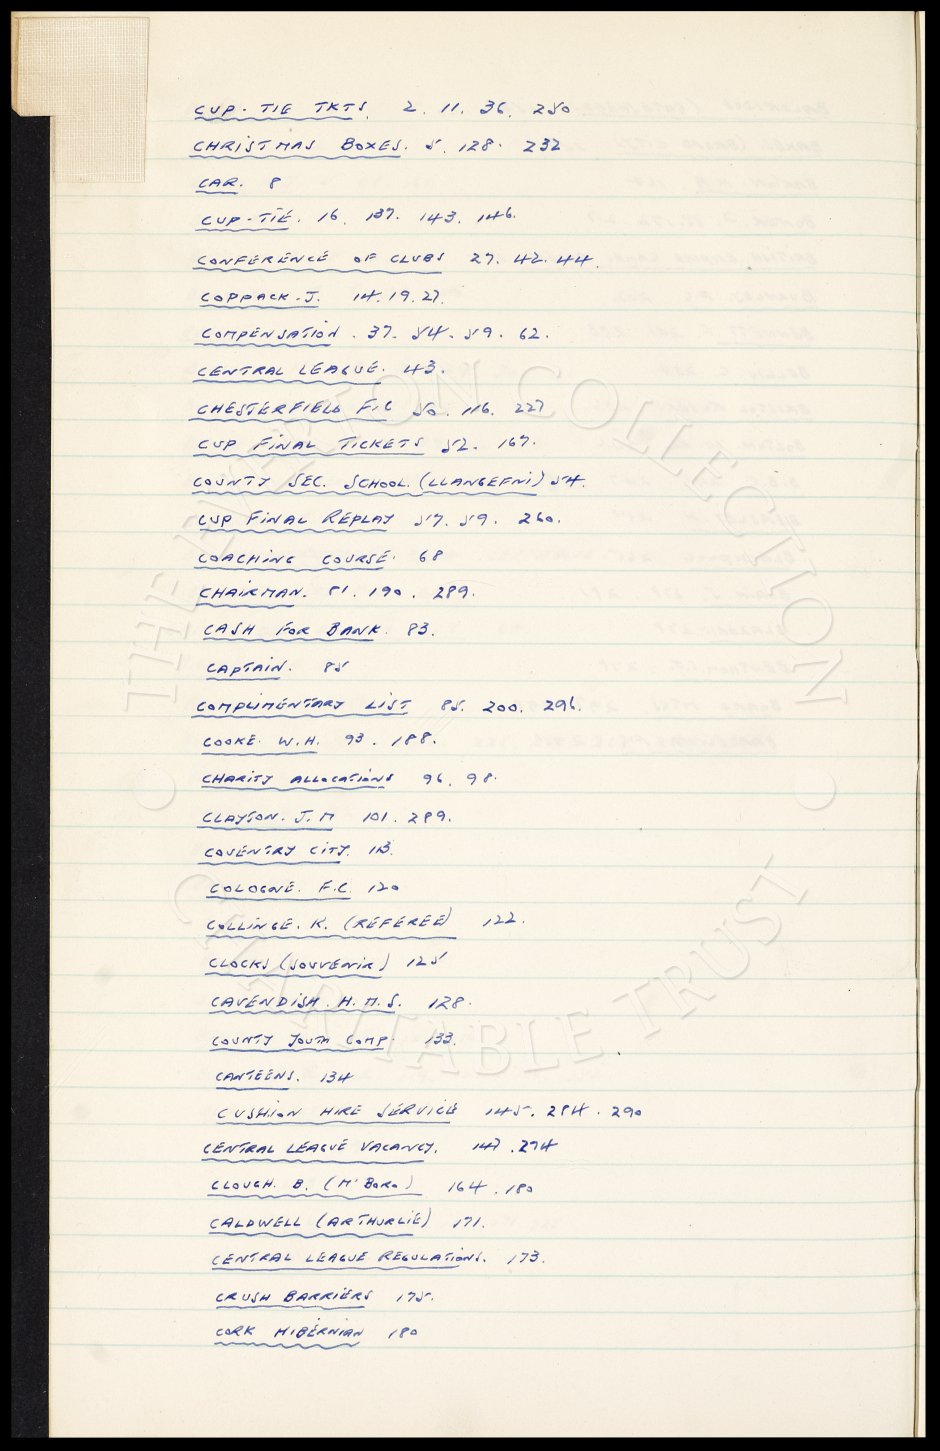 CUP-TIE TKTS. 2. 11. 36. 250.
CHRISTMAS BOXES. 5. 128. 232
CAR. 8
CUP-TIE. 16. 137. 143. 146.
CONFERENCE OF CLUBS 27. 42. 44.
COPPACK. J. 14. 19. 27.
COMPENSATION. 37. 54. 59. 62.
CENTRAL LEAGUE. 43.
CHESTERFIELD F.C 50. 116. 227
CUP FINAL TICKETS 52. 167.
COUNTY SEC. SCHOOL. (LLANGEFNI) 54.
CUP FINAL REPLAY 57. 59. 260.
COACHING COURSE. 68
CHAIRMAN. 81. 190. 289.
CASH FOR BANK. 83.
CAPTAIN. 85
COMPLIMENTARY LIST 85. 200. 296.
COOKE. W.H. 93. 188.
CHARITY ALLOCATIONS 96. 98.
CLAYTON. J.M 101. 289.
COVENTRY CITY. 113.
COLOGNE. F.C. 120
COLLINGE. K. (REFEREE) 122.
CLOCKS (SOUVENIR) 125
CAVENDISH. H.M.S. 128.
COUNTY YOUTH COMP. 133.
CANTEENS. 134
CUSHION HIRE SERVICE 145. 284. 290
CENTRAL LEAGUE VACANCY. 147. 274
CLOUGH. B. (M'BORO) 164. 180
CALDWELL (ARTHURLIE) 171.
CENTRAL LEAGUE REGULATIONS. 173.
CRUSH BARRIERS 175.
CORK HIBERNIAN 180
THE NEPTON COLLECTION
CHARITABLE TRUST